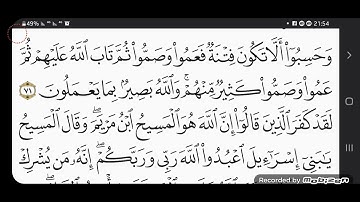 49%
21:54
وَحَسِبُوٓا۟ أَلَّا تَكُونَ فِتْنَةٌ فَعَمُوا۟ وَصَمُّوا۟ ثُمَّ تَابَ ٱللَّهُ عَلَيْهِمْ ثُمَّ
عَمُوا۟ وَصَمُّوا۟ كَثِيرٌ مِّنْهُمْ ۚ وَٱللَّهُ بَصِيرٌۢ بِمَا يَعْمَلُونَ ٧١
لَقَدْ كَفَرَ ٱلَّذِينَ قَالُوٓا۟ إِنَّ ٱللَّهَ هُوَ ٱلْمَسِيحُ ٱبْنُ مَرْيَمَ ۖ وَقَالَ ٱلْمَسِيحُ
يَٰبَنِىٓ إِسْرَٰٓءِيلَ ٱعْبُدُوا۟ ٱللَّهَ رَبِّى وَرَبَّكُمْ ۖ إِنَّهُۥ مَن يُشْرِكْ
Recorded by
Mobizen